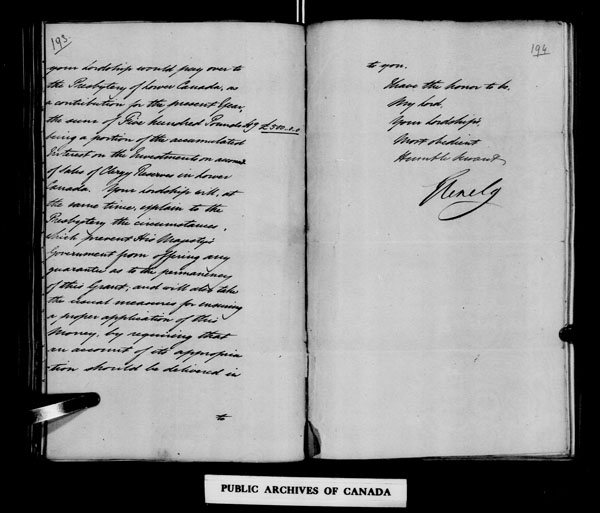 193.
your Lordship would pay over to
the Presbytery of Lower Canada, as
a contribution for the present Year,
the sum of Five hundred Pounds Stg £500.0.0
being a portion of the accumulated
Interest on the Investments on account
of Sales of Clergy Reserves in Lower
Canada. Your Lordship will, at
the same time, explain to the
Presbytery the circumstances,
which prevent His Majesty's
Government from offering any
guarantee as to the permanency
of this Grant; and will also take
the usual measures for ensuring
a proper application of this
Money, by requiring that
an account of its appropria
tion should be delivered in
to
194
to you.
I have the honor to be,
My Lord,
Your Lordship's,
Most obedient
Humble Servant,
Glenelg
PUBLIC ARCHIVES OF CANADA